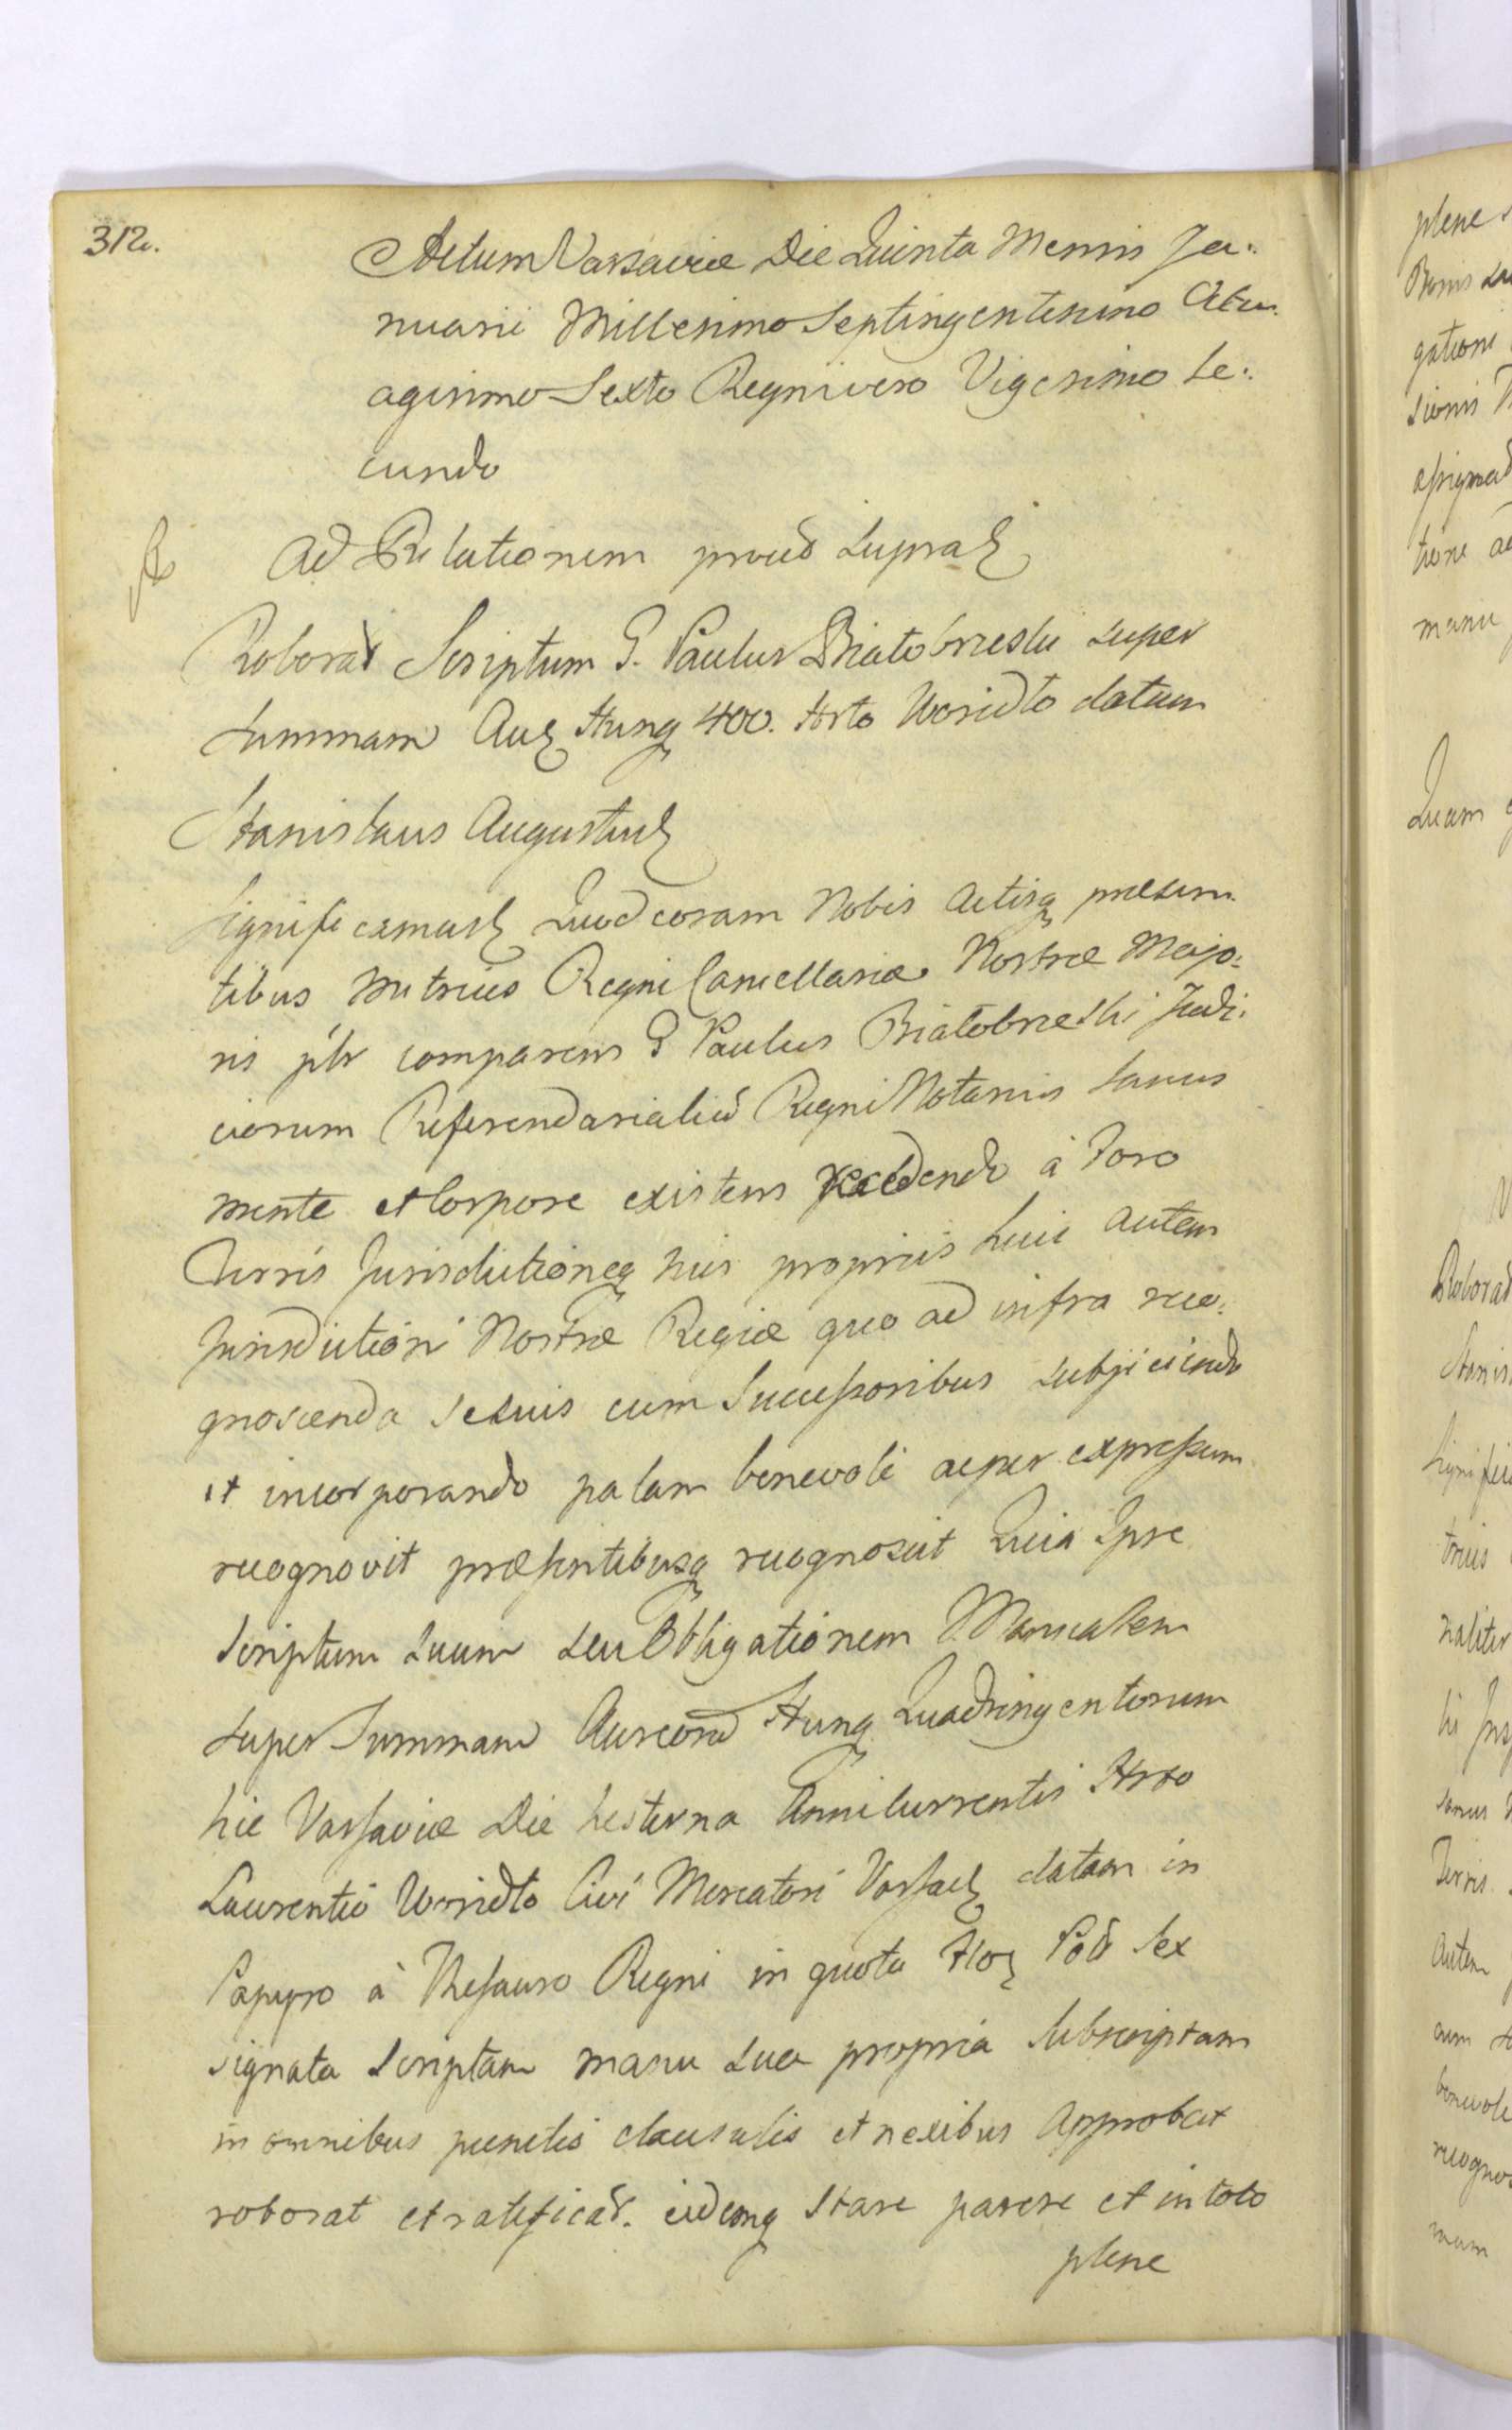 312.
Actum Varsaviæ Die Quinta Mensis Ja:
nuarii Millesimo Septingentesimo Octu
agesimo Sexto Regni vero Vigesimo Se:
cundo
Ad Relationem prout supra
Roborat Scriptum G. Paulus Białobrzeski super
Summam Aur Hung 400. Hrto datum
Stanislaus Augustus
Significamus Quod coram Nobis Actisq præsen
tibus Metrices Regni Cancellariæ Nostræ Majo:
ris plr comparens G Paulus Białobrzeski Judi:
ciorum Referendarialiu Regni Notarius Sanus
mente et Corpore existens recedendo à Foro
Terris Jurisdictioneq suis propriis huic autem
Jurisdictioni Nostræ Regiæ quo ad infra reco:
gnoscenda se suis cum Successoribus subjiciendo
et incorporando palam benevole ac per expressum
recognovit præsentibusq recognoscit Quia Ipse
Scriptum Suum seu Obligationem Manualem
super Summam Aureoru Hung Quadringentorum
hic Varsaviæ Die hesterna Anni Currentis Hrto
Laurentio Civi Mercatori Varsav datam in
Papyro à Thesauro Regni in quota Flor Pol Sex
signata Scriptam manu sua propria Subscriptam
in omnibus punctis clausulis et nexibus Approbat
roborat et ratificat. eidemq Stare parere et in toto
plene
plene
Bonis
gationi
sionis
assignat
tione ad
manu
Quam
Roborat
Stanis
Signific
tricis
naliter
Sanus
Terris
Autem
cum
benevole
recogno